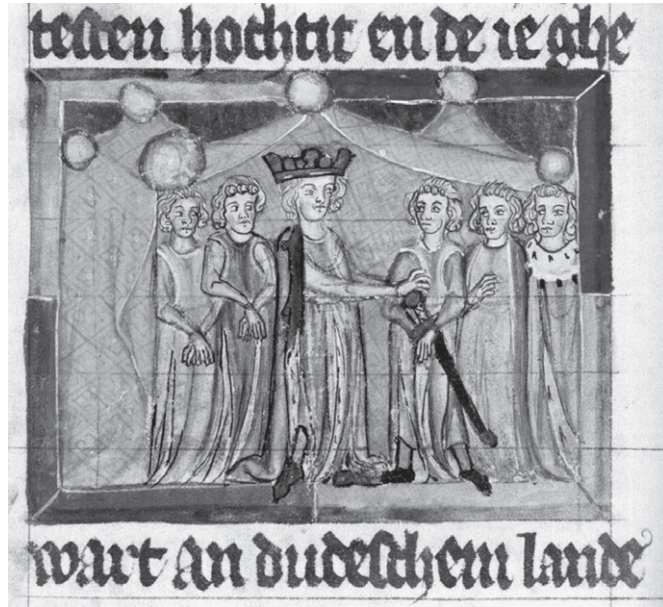 testen hochtit en de ie ghe
wart an dudeschem lande